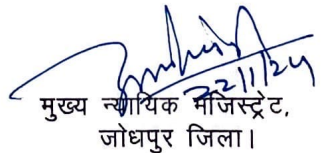 22/11/24
मुख्य न्यायिक मजिस्ट्रेट,
जोधपुर जिला।